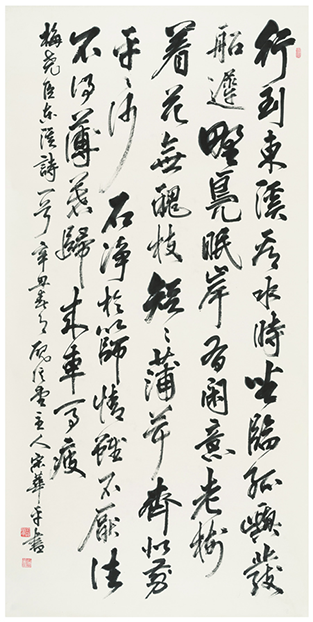 行到東溪看水時坐臨孤嶼發
船遲野鳧眠岸有閑意老樹
着花無醜枝短〻蒲茸齊似剪
平〻沙石淨於篩情雖不厭住
不得薄暮歸来車馬疲
梅堯臣東溪詩一首辛丑春月主人宋華平書